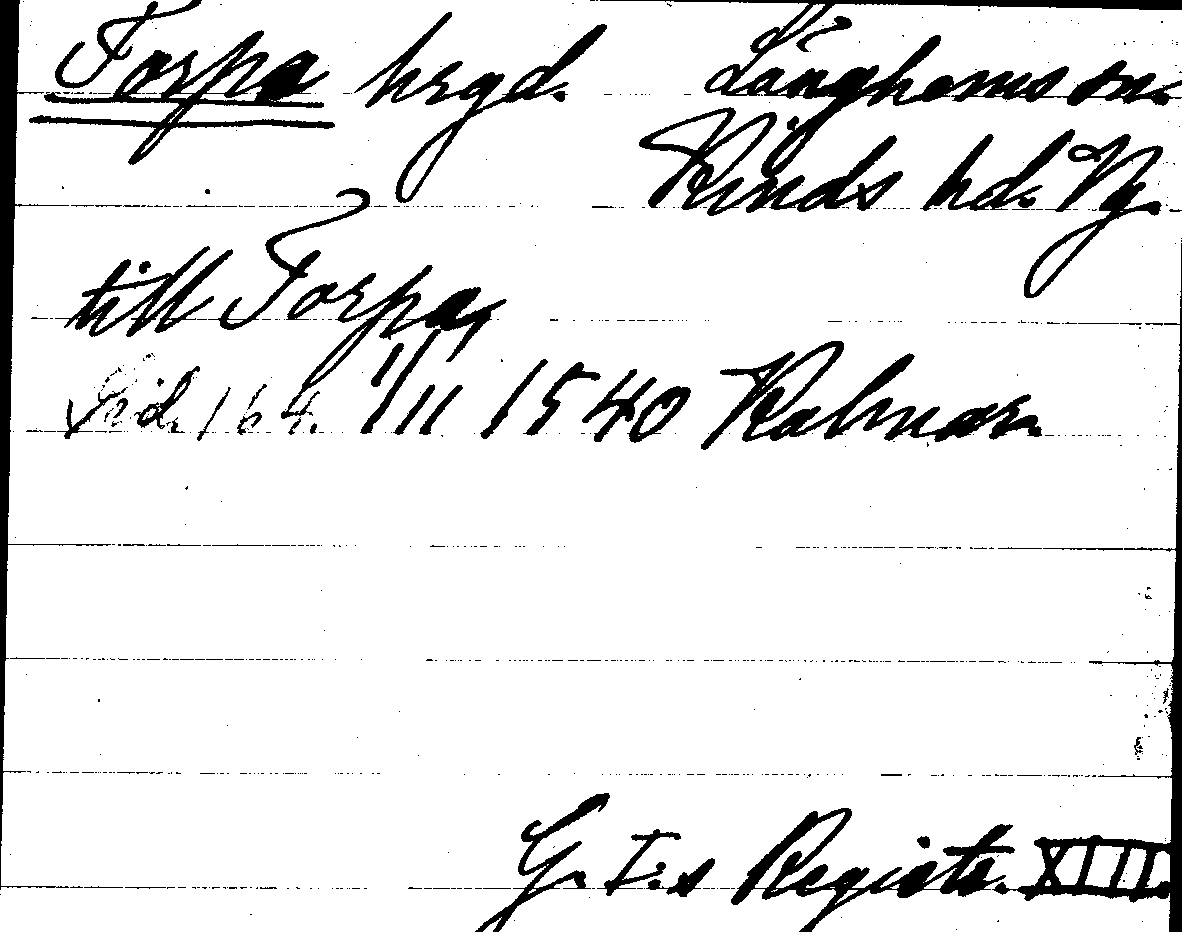 Torpa hrgd. Länghems sn.
Kinds hd. Vg.
till Torpa,
Sid. 164. 1/11 1540 Kalmar.
G. I:s Registr. XIII.